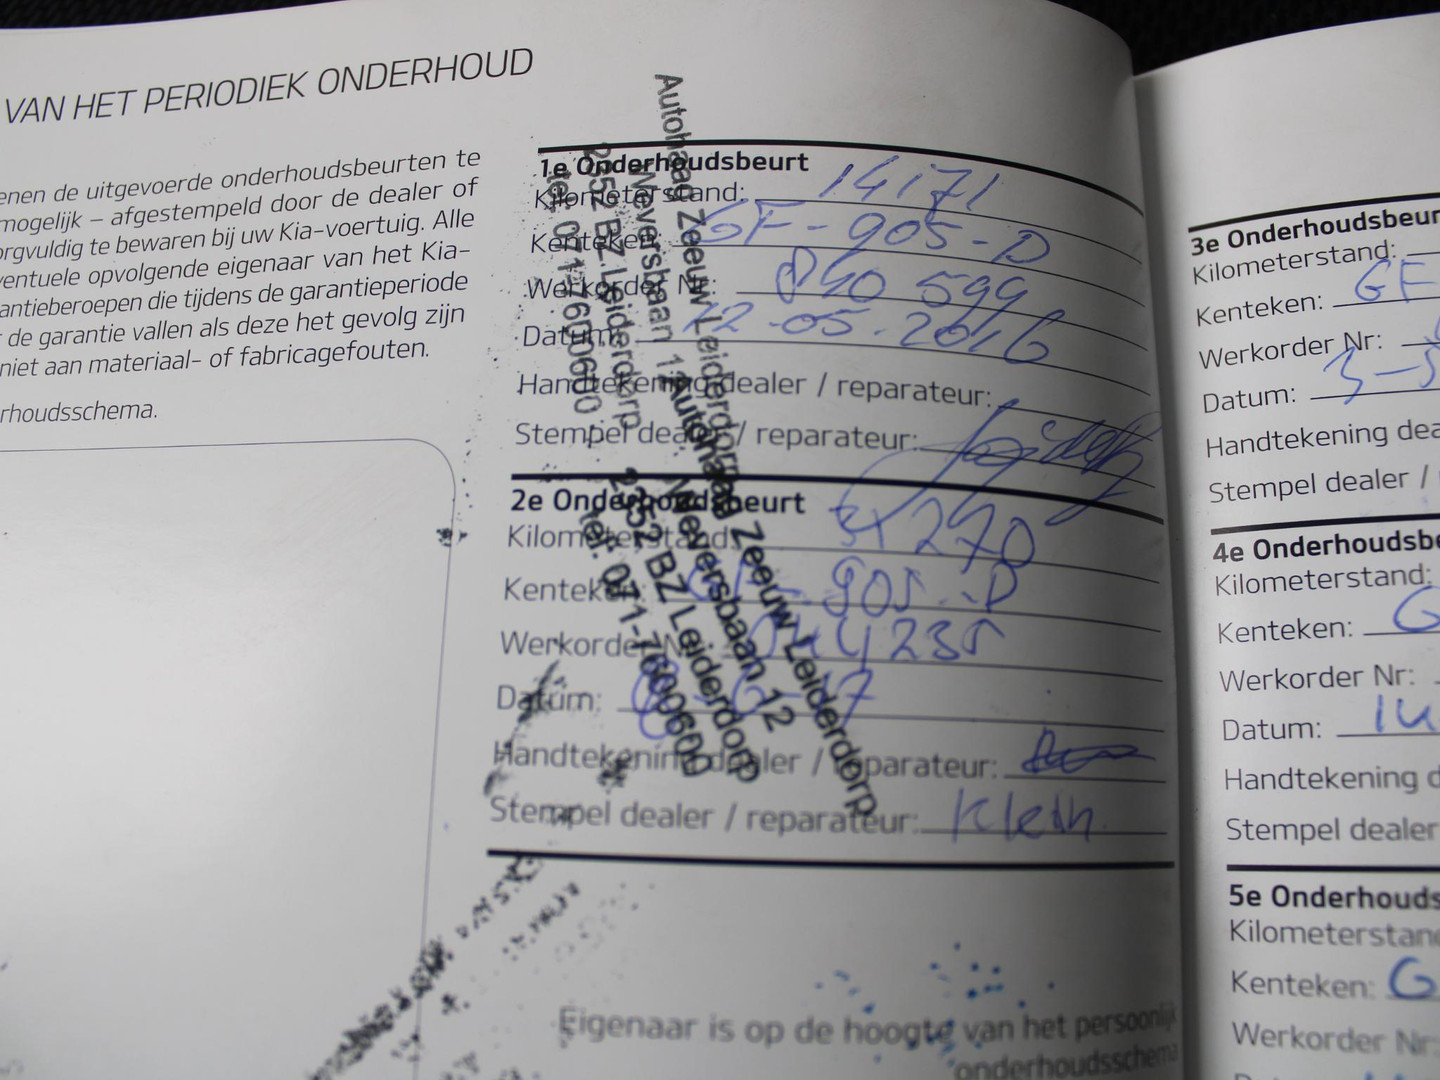 VAN HET PERIODIEK ONDERHOUD
enen de uitgevoerde onderhoudsbeurten te
mogelijk – afgestempeld door de dealer of
orgvuldig te bewaren bij uw Kia-voertuig. Alle
ventuele opvolgende eigenaar van het Kia-
antieberoepen die tijdens de garantieperiode
r de garantie vallen als deze het gevolg zijn
niet aan materiaal- of fabricagefouten.
rhoudsschema.
1e Onderhoudsbeurt
Kilometerstand: 14171
Kenteken: GF-905-D
Werkorder Nr: 840 599
Datum: 12-05-2016
Handtekening dealer / reparateur:
Stempel dealer / reparateur:
Autohaag Zeeuw Leiderdorp
Weversbaan 12
2352 BZ Leiderdorp
tel. 071-7600600
2e Onderhoudsbeurt
Kilometerstand: 31270
Kenteken: GF-905-D
Werkorder Nr: 044235
Datum: 8-6-17
Handtekening dealer / reparateur:
Stempel dealer / reparateur:
Autohaag Zeeuw Leiderdorp
Weversbaan 12
2352 BZ Leiderdorp
tel. 071-7600600
Eigenaar is op de hoogte van het persoonlijk
onderhoudsschema
3e Onderhoudsbeur
Kilometerstand:
Kenteken: GF
Werkorder Nr:
Datum: 3-5
Handtekening dea
Stempel dealer /
4e Onderhoudsbe
Kilometerstand:
Kenteken: G
Werkorder Nr:
Datum: 14
Handtekening d
Stempel dealer
5e Onderhouds
Kilometerstand
Kenteken: G
Werkorder Nr: